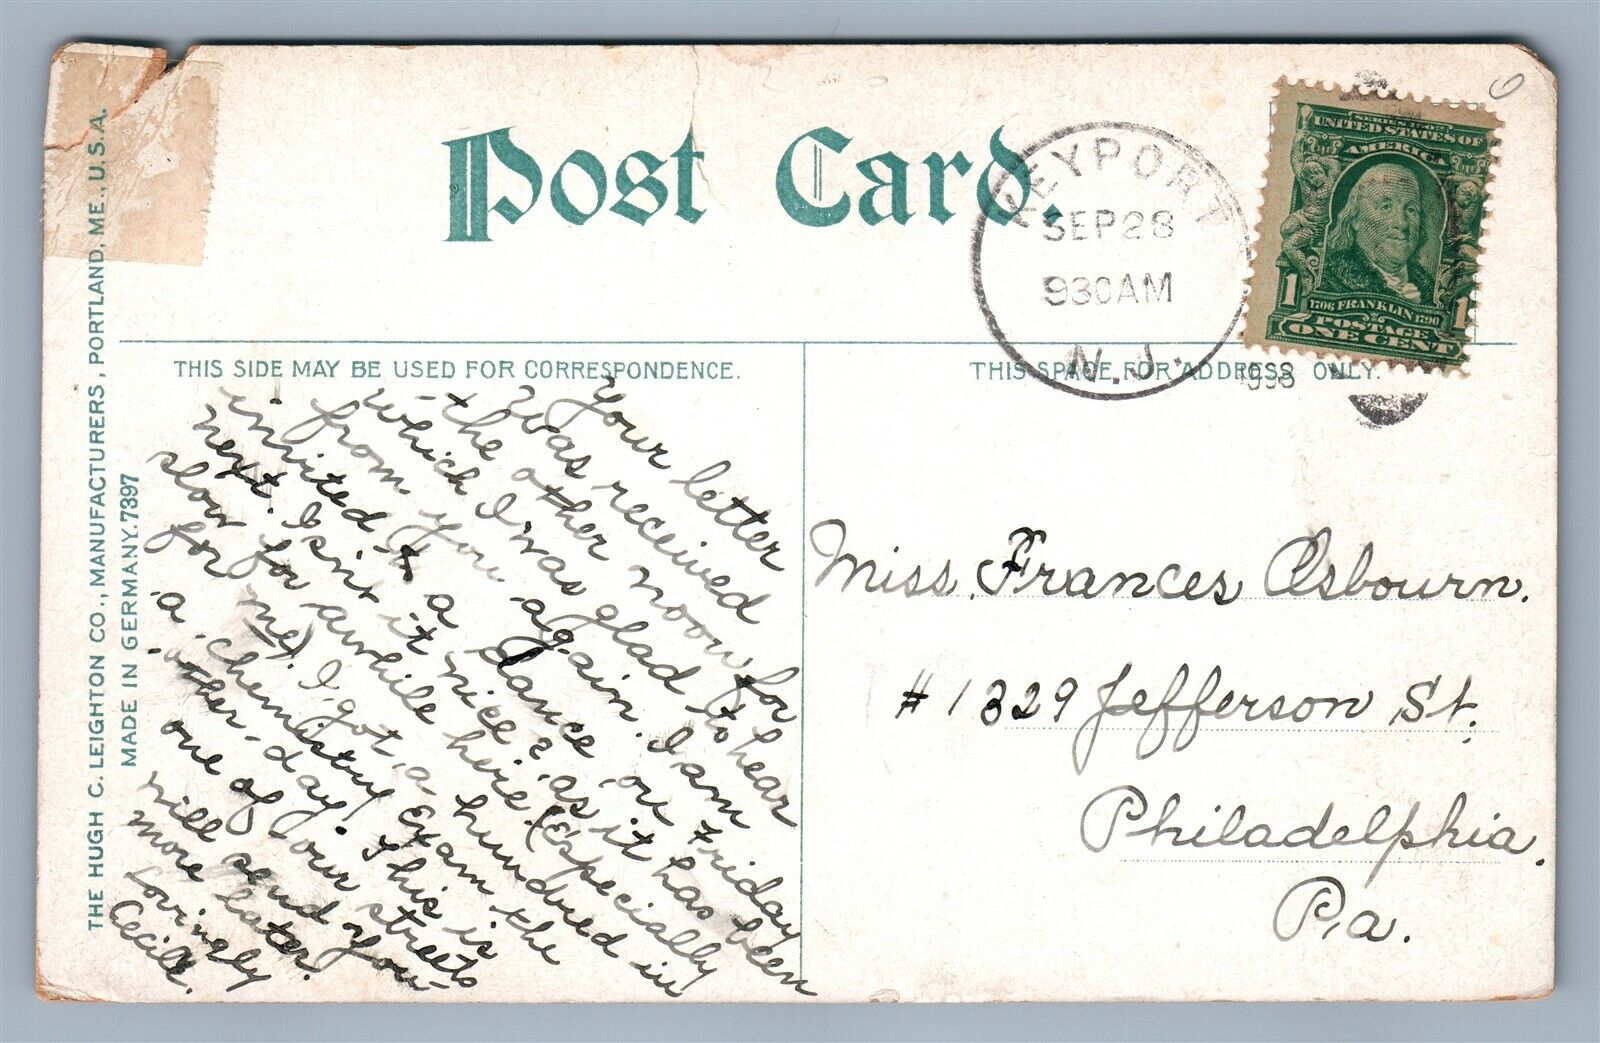 Post Card.
KEYPORT
SEP 28
930 AM
N.J.
SERIES 1902
UNITED STATES OF
AMERICA
1 1
1706 FRANKLIN 1790
POSTAGE
ONE CENT
THE HUGH C. LEIGHTON CO., MANUFACTURERS, PORTLAND, ME., U.S.A.
MADE IN GERMANY. 7397
THIS SIDE MAY BE USED FOR CORRESPONDENCE.
THIS SPACE FOR ADDRESS ONLY.
Your letter
was received
the other noon, for
which I was glad to hear
from you again. I am
invited to a dance on Friday
next. Isn't it nice? as it has been
slow for awhile here. (Especially
for me). I got a hundred in
a chemistry Exam the
other day. This is
one of our streets
will send you
more later.
Lovingly
Cecile.
Miss. Frances Osbourn.
# 1329 Jefferson St.
Philadelphia.
Pa.